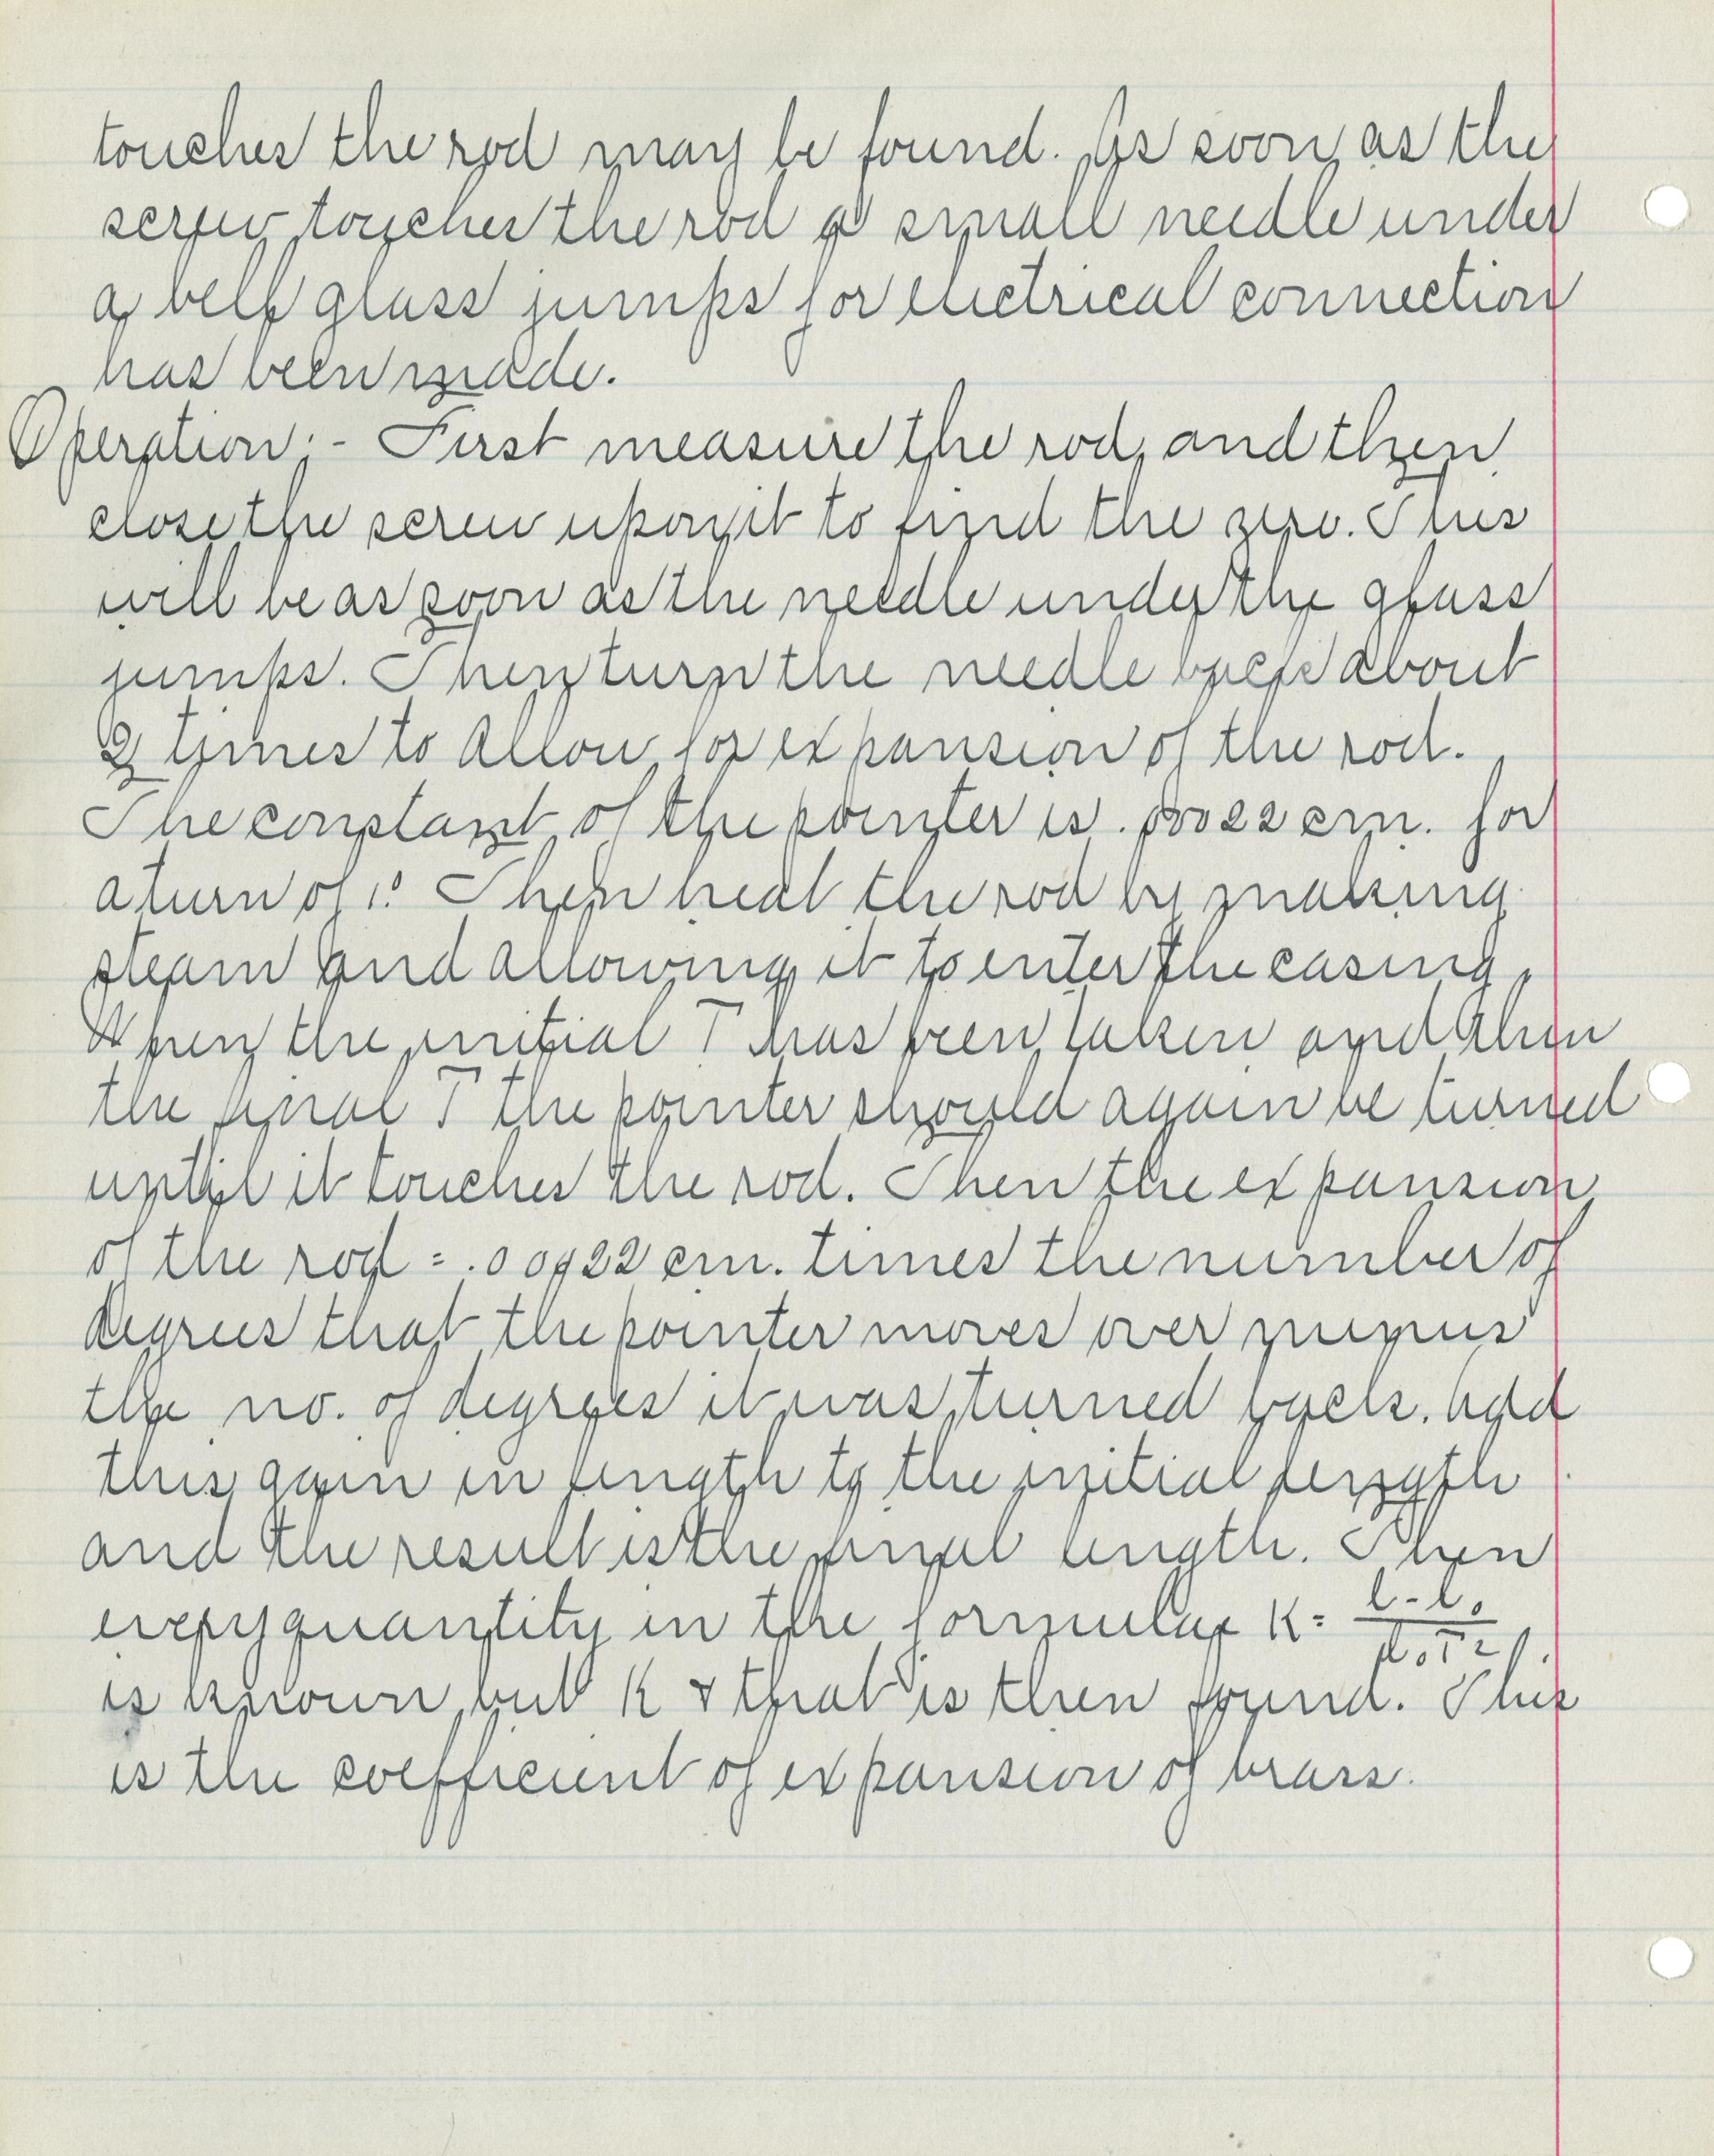 touches the rod may be found. As soon as the
screw touches the rod a small needle under
a bell glass jumps for electrical connection
has been made.
Operation:- First measure the rod, and then
close the screw upon it to find the zero. This
will be as soon as the needle under the glass
jumps. Then turn the needle back about
2 times to allow for expansion of the rod.
The constant of the pointer is .00022 cm. for
a turn of 1°. Then heat the rod by making
steam and allowing it to enter the casing.
When the initial T has been taken and then
the final T the pointer should again be turned
until it touches the rod. Then the expansion
of the rod = .00022 cm. times the number of
degrees that the pointer moves over minus
the no. of degrees it was turned back. Add
this gain in length to the initial length
and the result is the final length. Then
every quantity in the formula K = (l - l₀) / (l₀T₂)
is known but K & that is then found. This
is the coefficient of expansion of brass.